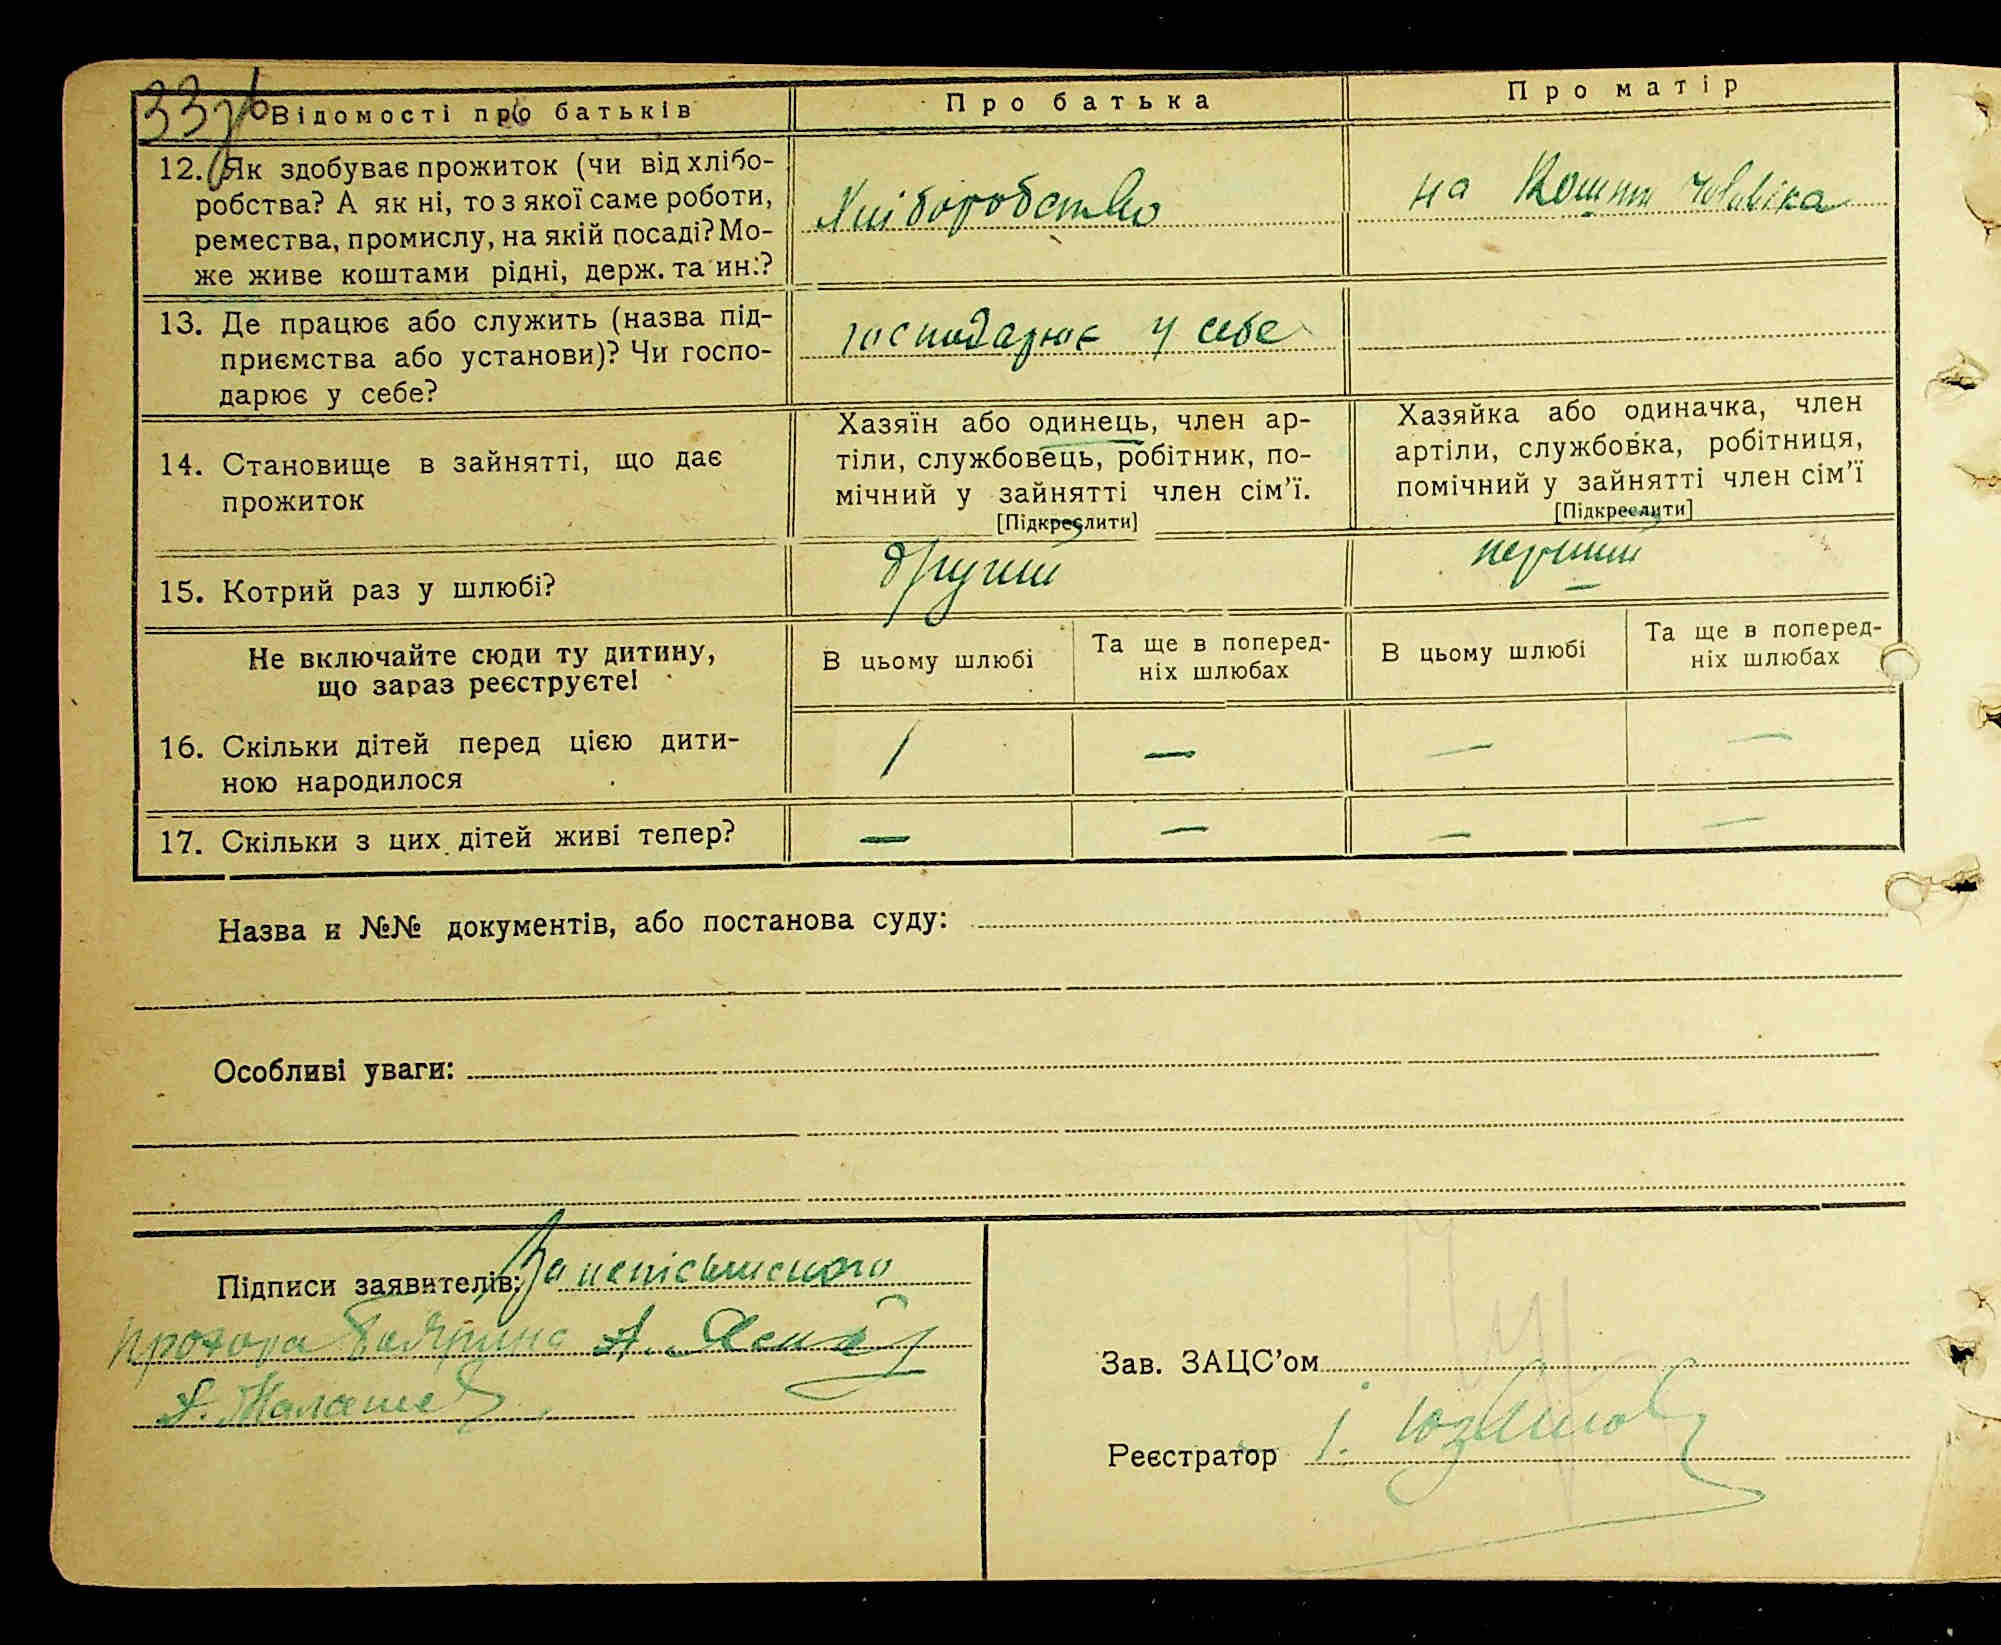 33зв
Відомості про батьків
Про батька
Про матір
12. Як здобуває прожиток (чи від хлібо-
робства? А як ні, то з якої саме роботи,
ремества, промислу, на якій посаді? Мо-
же живе коштами рідні, держ. та ин.?
Хліборобство
на Кошти чоловіка
13. Де працює або служить (назва під-
приємства або установи)? Чи госпо-
дарює у себе?
господарює у себе
14. Становище в зайнятті, що дає
прожиток
Хазяїн або одинець, член ар-
тіли, службовець, робітник, по-
мічний у зайнятті член сім'ї.
[Підкреслити]
Хазяйка або одиначка, член
артіли, службовка, робітниця,
помічний у зайнятті член сім'ї
[Підкреслити]
15. Котрий раз у шлюбі?
другий
перший
Не включайте сюди ту дитину,
що зараз реєструєте!
В цьому шлюбі
Та ще в поперед-
ніх шлюбах
В цьому шлюбі
Та ще в поперед-
ніх шлюбах
16. Скільки дітей перед цією дити-
ною народилося
/ — — —
17. Скільки з цих дітей живі тепер?
— — — —
Назва и №№ документів, або постанова суду:
Особливі уваги:
Підписи заявителів: За неписьменого
Прохора А.
А. Малаше
Зав. ЗАЦС'ом
Реєстратор І.